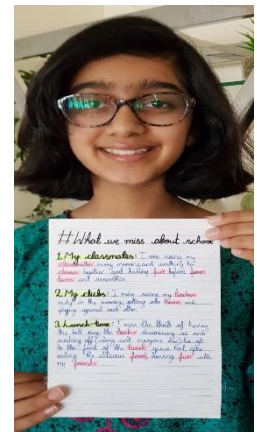 #What we miss about school
1. My classmates: I miss seeing my
classmates every morning and walking to
classes together and having fun before
and assemblies.
2. My clubs: I miss seeing my teachers
early in the morning, getting into teams and
playing against each other.
3. Lunch-time: I miss the thrill of hearing
the bell ring, the teacher dismissing us and
rushing off (along with everyone else) to get
to the front of the lunch queue. And after
eating the delicious food, having fun with
my friends.